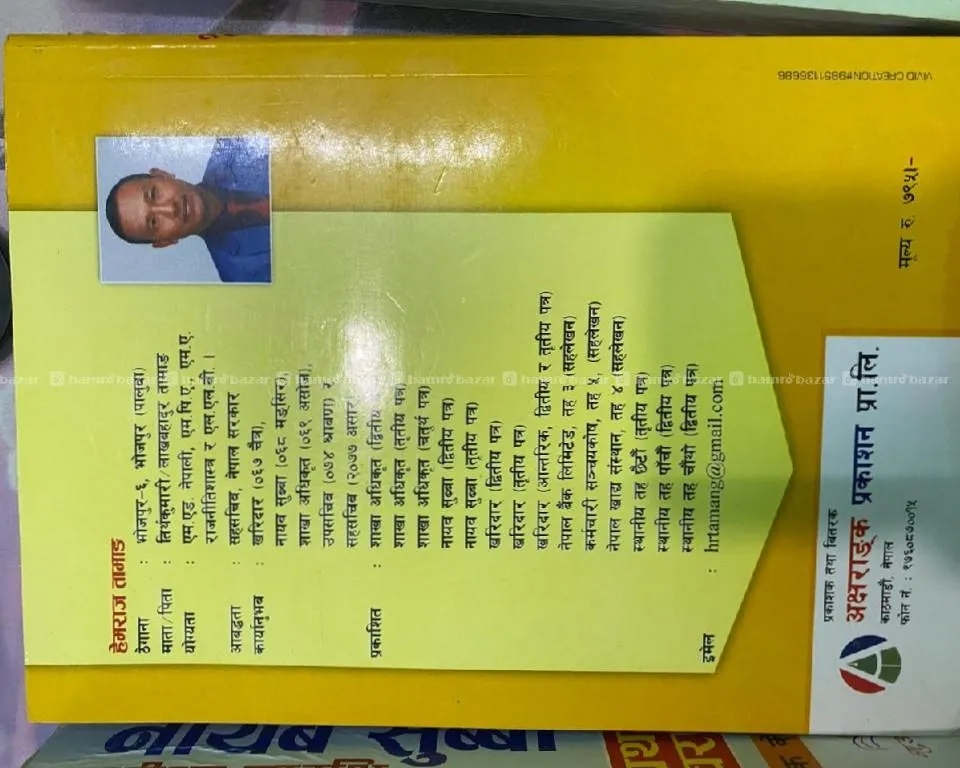 हेमराज तामाङ
ठेगाना : भोजपुर-६, भोजपुर (पालुवा)
माता/पिता : तिर्थकुमारी/लाखबहादुर तामाङ
योग्यता : एम.एड. नेपाली, एम.पि.ए., एम.ए.
राजनीतिशास्त्र र एल.एल.बी. ।
आबद्धता : सहसचिव, नेपाल सरकार
कार्यानुभव : खरिदार (०६७ चैत्र),
नायव सुब्बा (०६८ मङ्सिर),
शाखा अधिकृत (०६९ असोज),
उपसचिव (०७४ श्रावण) र
सहसचिव (२०७७ असार
प्रकाशित : शाखा अधिकृत (द्वितीय
शाखा अधिकृत (तृतीय पत्र)
शाखा अधिकृत (चतुर्थ पत्र)
नायव सुब्बा (द्वितीय पत्र)
नायव सुब्बा (तृतीय पत्र)
खरिदार (द्वितीय पत्र)
खरिदार (तृतीय पत्र)
खरिदार (आन्तरिक, द्वितीय र तृतीय पत्र)
नेपाल बैंक लिमिटेड, तह ३ (सहलेखन)
कर्मचारी सञ्चयकोष, तह ५, (सहलेखन)
नेपाल खाद्य संस्थान, तह ४ (सहलेखन)
स्थानीय तह छैटौं (तृतीय पत्र)
स्थानीय तह पाँचौं (द्वितीय पत्र)
स्थानीय तह चौथो (द्वितीय पत्र)
इमेल : hrtamang@gmail.com
प्रकाशक तथा वितरक
अक्षराङ्क प्रकाशन प्रा.लि.
काठमाडौं, नेपाल
फोन नं. : ९७६०८७००१५
मूल्य रु. ७९५।-
VIVID CREATION#9851136686
नायब सुब्बा
hamrobazar